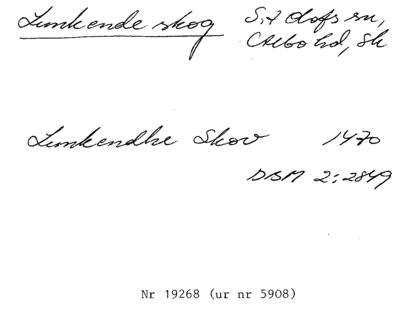 Lunkende skog S:t Olofs sn,
Albo hd, Sk
Lunkendhe Skov 1470
DBM 2:2849
Nr 19268 (ur nr 5908)